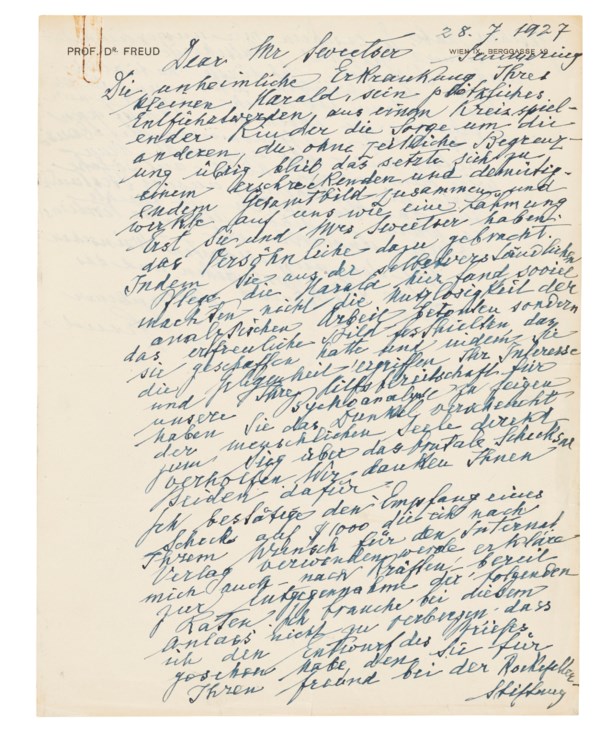 28. 7. 1927
PROF. DR. FREUD
WIEN IX., BERGGASSE 19
Dear Mr Sweetser Semmering
Die unheimliche Erkrankung Ihres
kleinen Harald, sein plötzliches
Entführtwerden, aus einem Kreis spiel-
ender Kinder die Sorge um die
anderen, die ohne zeitliche Begrenz-
ung übrig blieb das setzte sich zu
einem erschreckenden und demütig-
endem Gesamtbild zusammen und
wirkte auf uns wie eine Lähmung
erst Sie und Mrs Sweetser haben
das Versöhnliche dazu gebracht.
Indem Sie aus der selbstverständlichen
Pflege die Harald hier fand soviel
machten nicht die Nutzlosigkeit der
analytischen Arbeit betonten sondern
das erfreuliche Bild festhielten das
sie geschaffen hatte und indem Sie
die Gelegenheit ergriffen Ihr Interesse
und Ihre Hilfsbereitschaft für
unsere Psychoanalyse zu zeigen
haben Sie das Dunkel verscheucht
der menschlichen Seele direkt
zum Sieg über das brutale Schicksal
verholfen Wir danken Ihnen
beiden dafür.
Ich bestätige den Empfang eines
Schecks auf $1000 die ich nach
Ihrem Wunsch für den Internat
Verlag verwenden werde erkläre
mich auch nach Kräften bereit
zur Entgegennahme der folgenden
Raten. Ich brauche bei diesem
Anlass nicht zu verbergen dass
ich den Entwurf des Briefes
gesehen habe den Sie für
Ihren freund bei der Rockefeller-
Stiftung